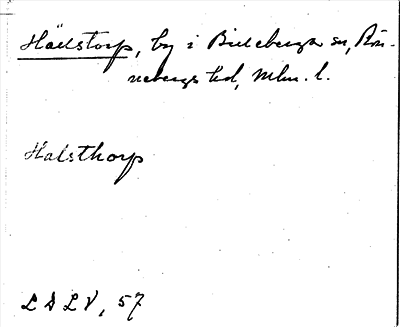 Hällstorp, by i Billeberga sn, Rön-
nebergs hd, Mlm. l.
Halsthorp
LDLV, 57